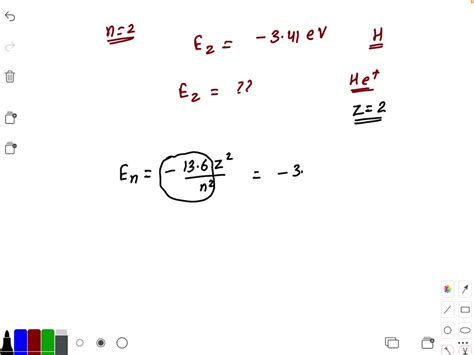 n=2
E₂ = -3.41 eV H
E₂ = ?? He⁺
Z=2
Eₙ = -13.6 Z²/n² = -3.